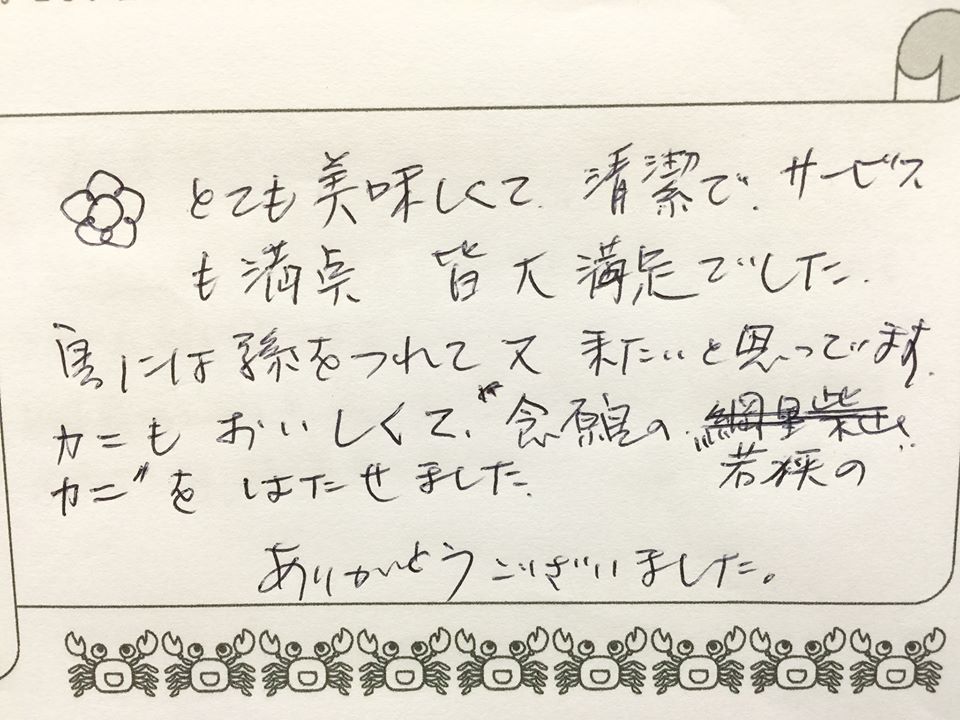 とても美味しくて、清潔で、サービス
も満点 皆大満足でした。
には孫をつれて又 来たいと思っています。
カニもおいしくて、"念願の
若狭の
カニ"を はたせました。
ありがとうございました。